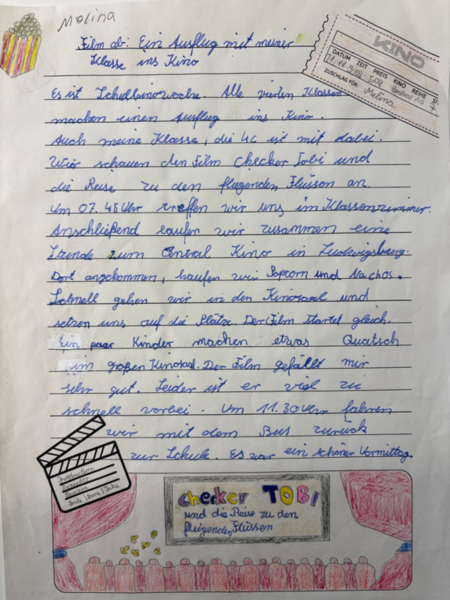 Melina
Film ab: Ein Ausflug mit meiner
Klasse ins Kino
KINO
DATUM ZEIT PREIS KINO REIHE
ZUSCHLAG FÜR: Melina
Es ist Schulkinowoche. Alle vierten Klassen
machen einen Ausflug ins Kino.
Auch meine Klasse, die 4c ist mit dabei.
Wir schauen den Film Checker Tobi und
die Reise zu den fliegenden Flüssen an.
Um 07.45 Uhr treffen wir uns im Klassenzimmer.
Anschließend laufen wir zusammen eine
Stunde zum Central Kino in Ludwigsburg.
Dort angekommen, kaufen wir Popcorn und Nachos.
Schnell gehen wir in den Kinosaal und
setzen uns auf die Plätze. Der Film startet gleich.
Ein paar Kinder machen etwas Quatsch
im großen Kinosaal. Der Film gefällt mir
sehr gut. Leider ist er viel zu
schnell vorbei. Um 11.30 Uhr fahren
wir mit dem Bus zurück
zur Schule. Es war ein schöner Vormittag.
checker TOBI
und die Reise zu den
fliegenden Flüssen